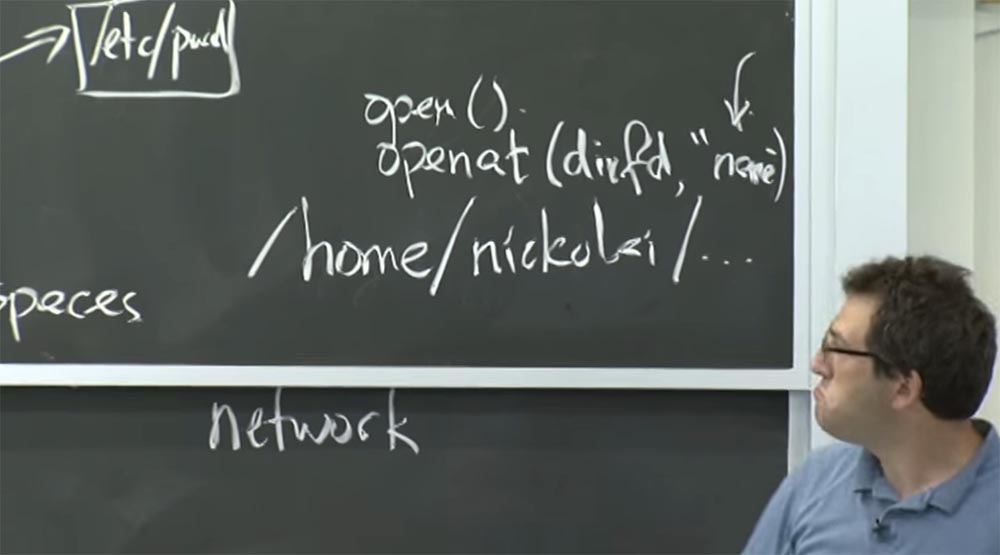 /etc/pwd
open().
openat (dirfd, "name")
/home/nickolai/...
spaces
network